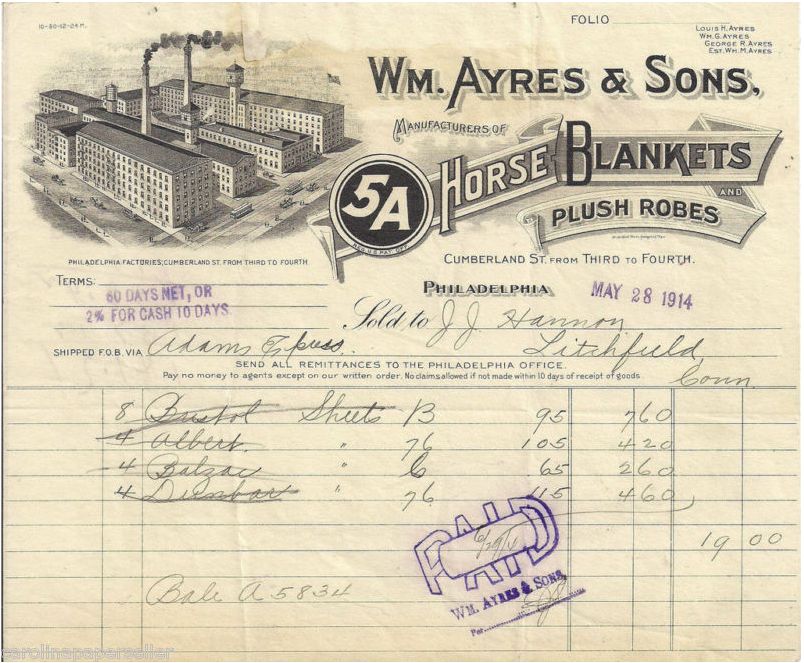 10-30-12-24M.
FOLIO
LOUIS H. AYRES
WM. G. AYRES
GEORGE R. AYRES
EST. WM. M. AYRES
WM. AYRES & SONS,
MANUFACTURERS OF
5A
REG. U.S. PAT. OFF.
HORSE BLANKETS
AND
PLUSH ROBES
PHILADELPHIA FACTORIES; CUMBERLAND ST. FROM THIRD TO FOURTH.
CUMBERLAND ST. FROM THIRD TO FOURTH.
TERMS:
60 DAYS NET, OR
2% FOR CASH 10 DAYS
PHILADELPHIA
MAY 28 1914
Sold to J. J. Hannon
SHIPPED F.O.B. VIA Adams Express. Litchfield,
Conn.
SEND ALL REMITTANCES TO THE PHILADELPHIA OFFICE.
Pay no money to agents except on our written order. No claims allowed if not made within 10 days of receipt of goods.
8 Bristol Sheets B 95 760
4 Albert " 76 105 420
4 Balzac " 65 260
4 Dunbar " 76 115 460
19 00
PAID
6/29/14
WM. AYRES & SONS,
Per
Bale A 5834
carolinapaperseller